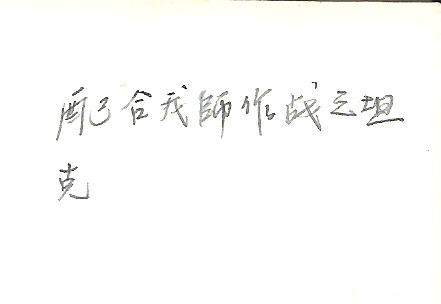 配合我師作战之坦
克